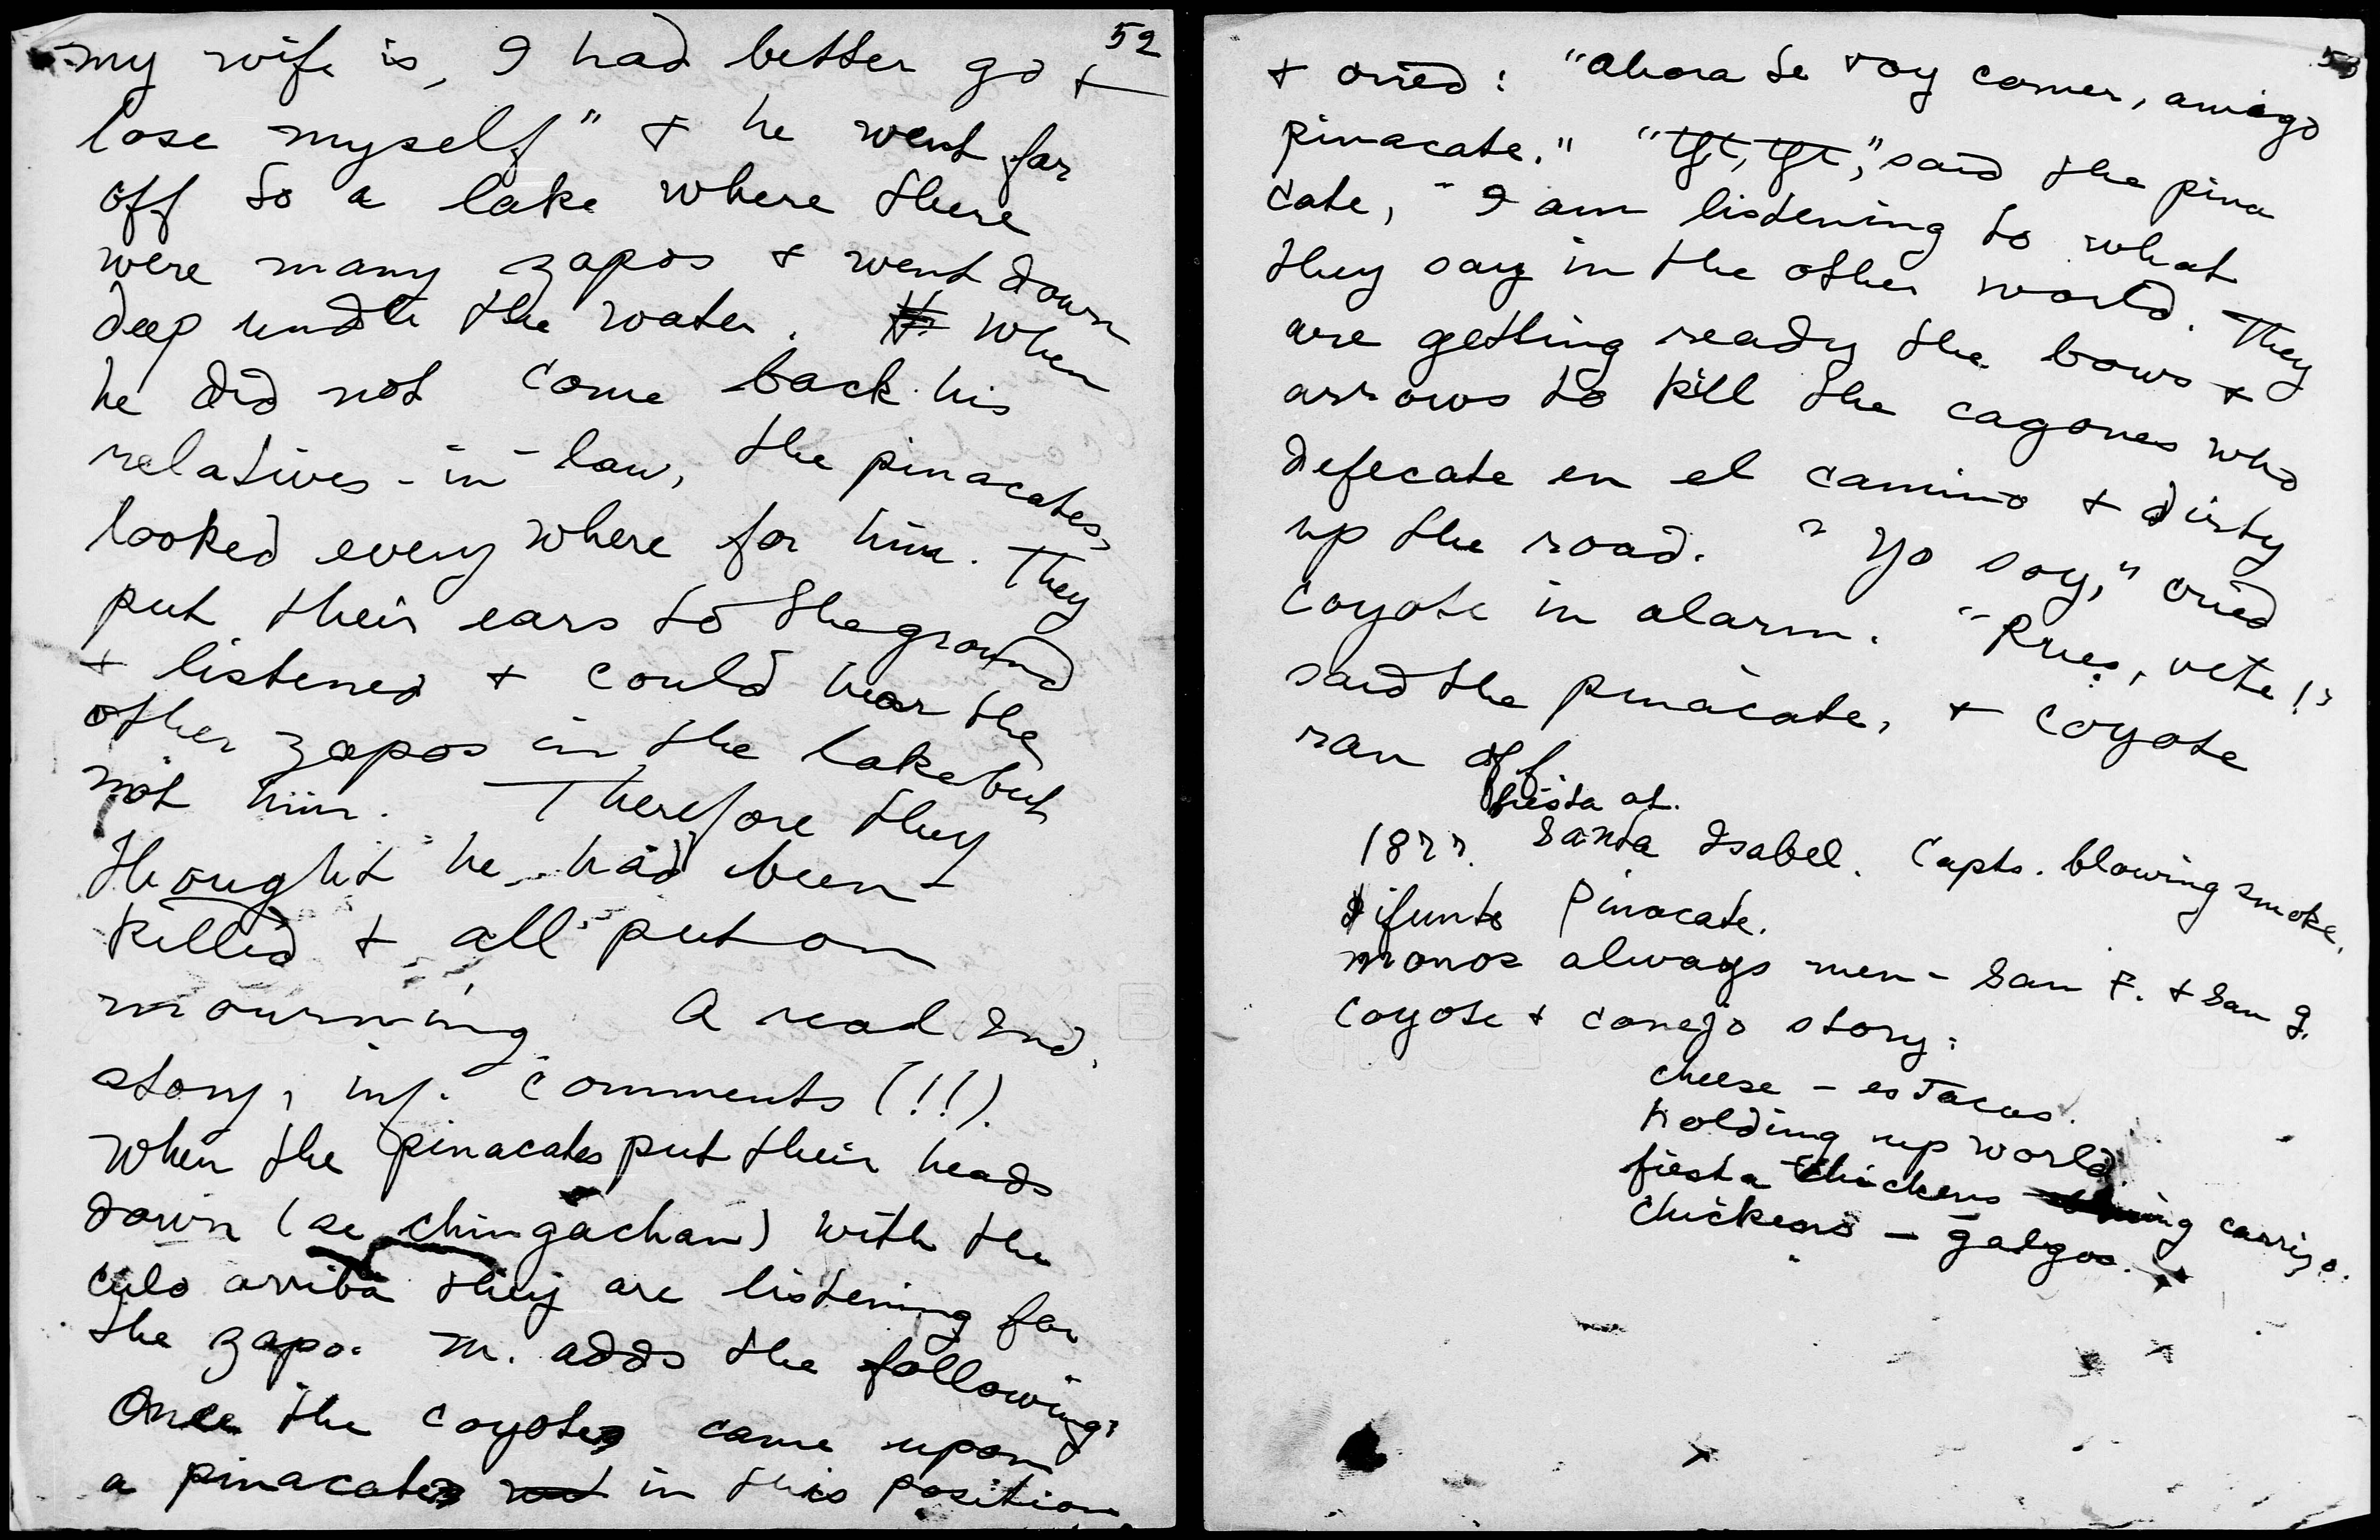 52
my wife is, I had better go +
lose myself" + he went far
off to a lake where there
were many zapos + went down
deep under the water. When
he did not come back his
relatives-in-law, the pinacates,
looked every where for him. They
put their ears to the ground
+ listened + could hear the
other zapos in the lake but
not him. Therefore they
thought he had been
killed + all put on
mourning. A real Ind.
story, inf. comments (!!).
When the pinacates put their heads
down (se chingachan) with the
culo arriba they are listening for
the zapo. M. adds the following:
Once the coyote came upon
a pinacate in this position
53
+ cried: "Ahora te voy comer, amigo
pinacate." "tft, tft," said the pina
cate, "I am listening to what
they say in the other world. They
are getting ready the bows +
arrows to kill the cagones who
defecate en el camino + dirty
up the road. "Yo soy," cried
coyote in alarm. "Pues, vete!"
said the pinacate, + coyote
ran off
fiesta at.
187?. Santa Isabel. Capts. blowing smoke.
difunto Pinacate.
monos always men - San F. + San J.
Coyote + conejo story:
cheese - es Tacus.
holding up world
fiesta chickens carrizo.
Chickens - galgos.